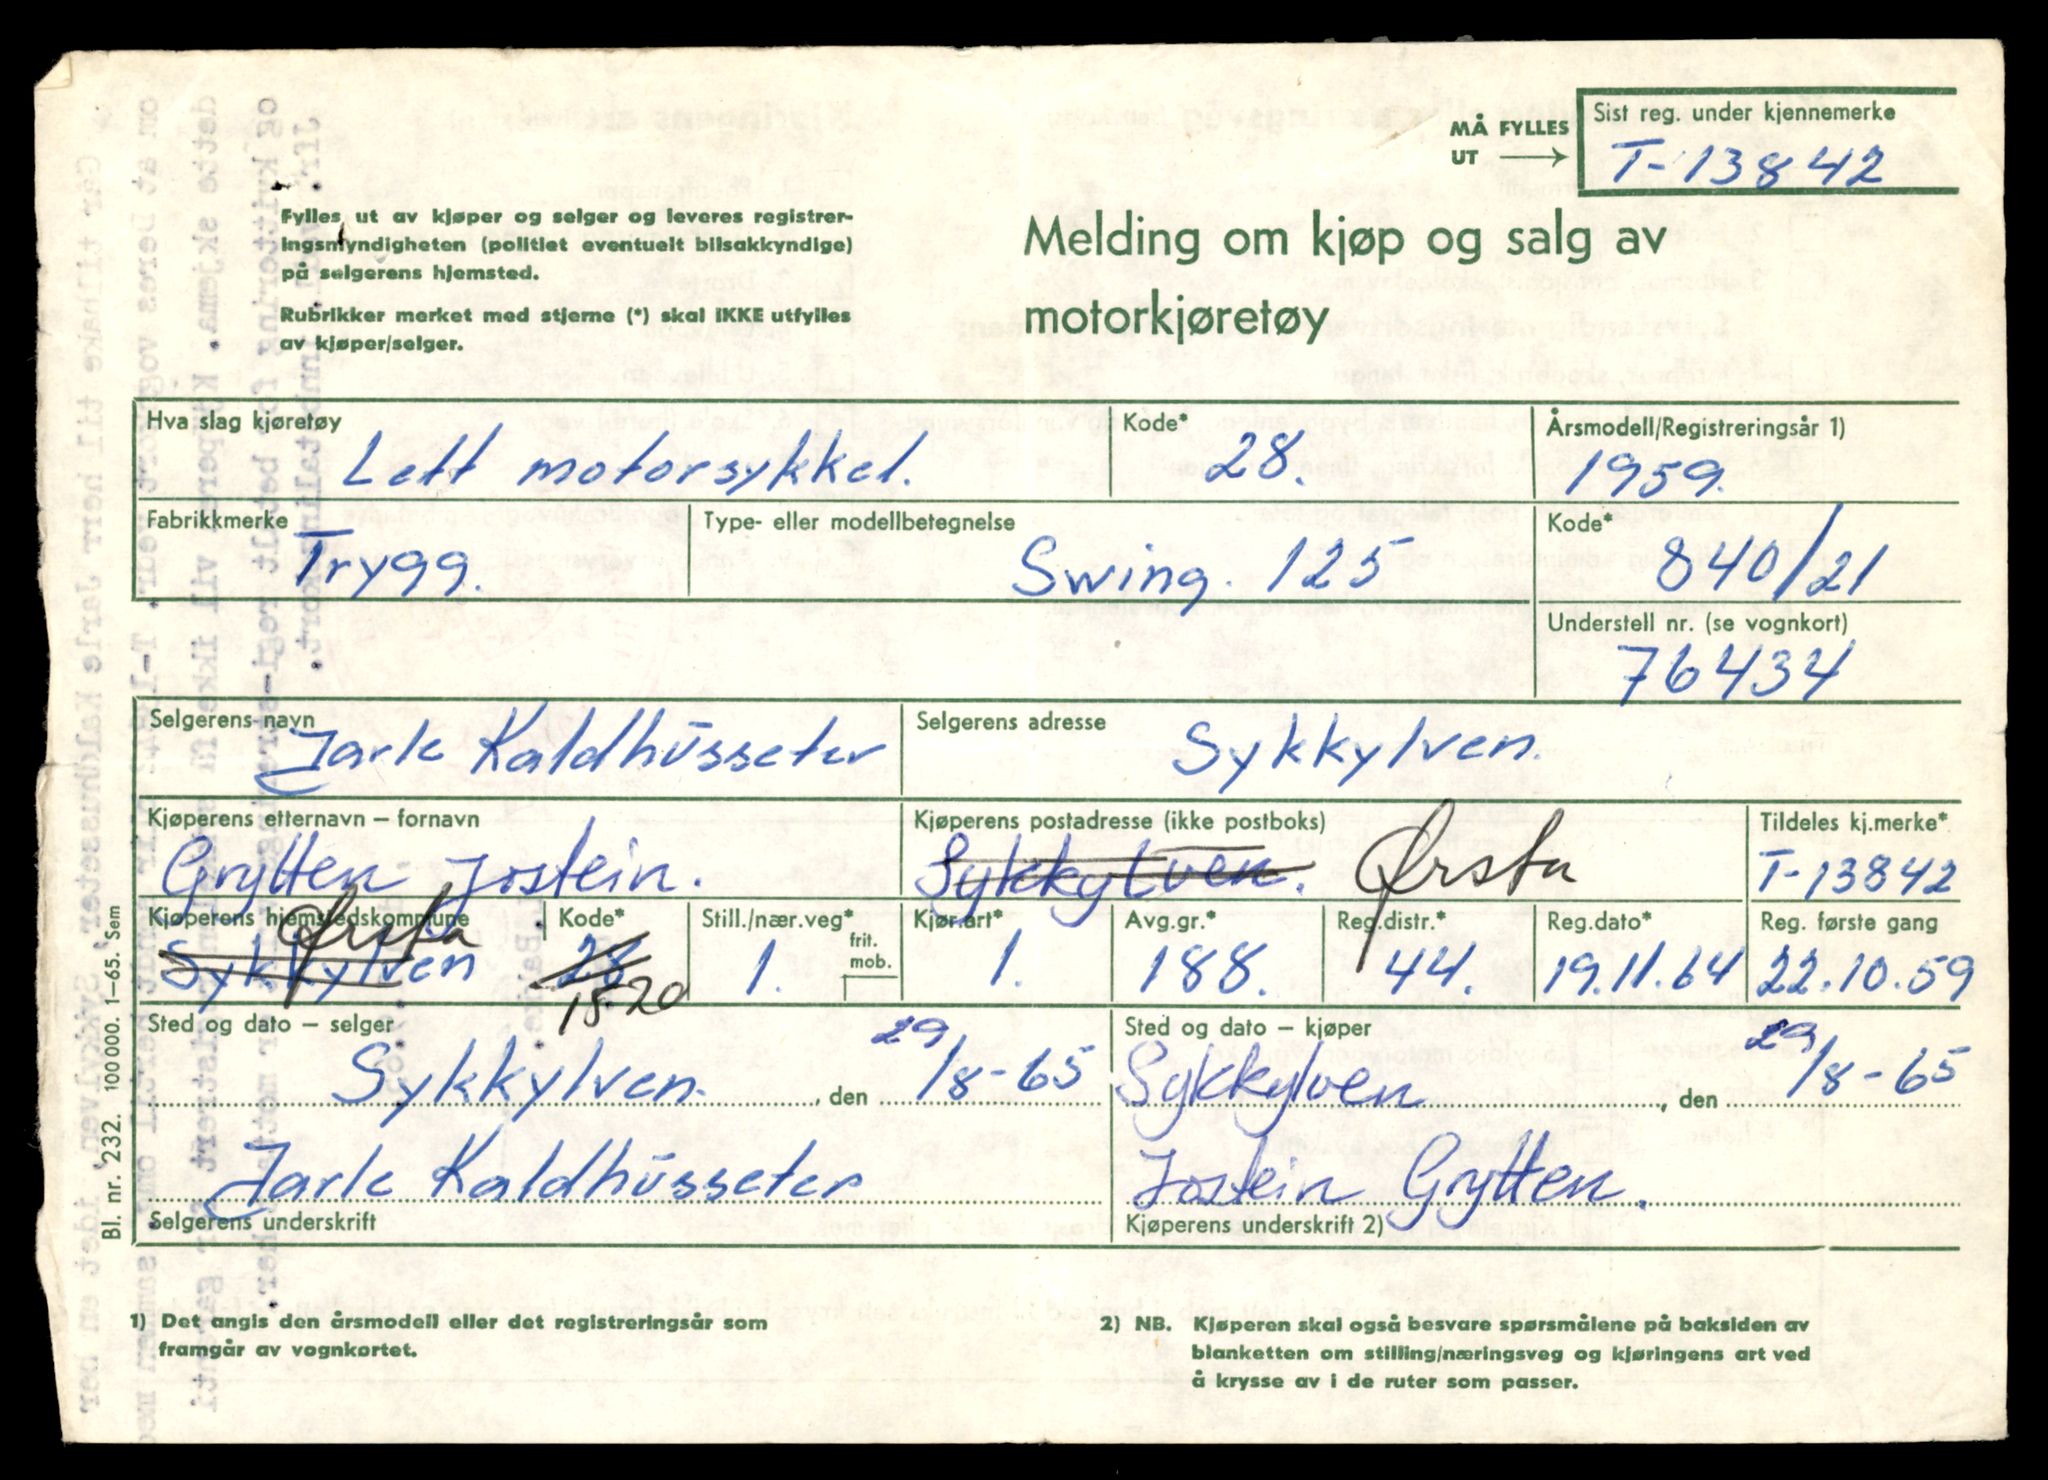 MÅ FYLLES UT → Sist reg. under kjennemerke
T-13842
Fylles ut av kjøper og selger og leveres registrer-
ingsmyndigheten (politiet eventuelt bilsakkyndige)
på selgerens hjemsted.
Rubrikker merket med stjerne (*) skal IKKE utfylles
av kjøper/selger.
Melding om kjøp og salg av
motorkjøretøy
Hva slag kjøretøy Kode* Årsmodell/Registreringsår 1)
Lett motorsykkel. 28. 1959.
Fabrikkmerke Type- eller modellbetegnelse Kode*
Trygg. Swing. 125 840/21
Understell nr. (se vognkort)
76434
Selgerens navn Selgerens adresse
Jarle Kaldhusseter Sykkylven.
Kjøperens etternavn – fornavn Kjøperens postadresse (ikke postboks) Tildeles kj.merke*
Grytten Jostein. Sykkylven. Ørsta T-13842
Kjøperens hjemstedskommune Kode* Still./nær.veg* frit. mob. Kjør.art* Avg.gr.* Reg.distr.* Reg.dato* Reg. første gang
Ørsta
Sykkylven 28 1. 1. 188. 44. 19.11.64 22.10.59
1520
Sted og dato – selger Sted og dato – kjøper
Sykkylven. , den 29/8-65 Sykkylven , den 29/8-65
Jarle Kaldhusseter Jostein Grytten.
Selgerens underskrift Kjøperens underskrift 2)
Bl. nr. 232. 100 000. 1-65. Sem
1) Det angis den årsmodell eller det registreringsår som
framgår av vognkortet.
2) NB. Kjøperen skal også besvare spørsmålene på baksiden av
blanketten om stilling/næringsveg og kjøringens art ved
å krysse av i de ruter som passer.